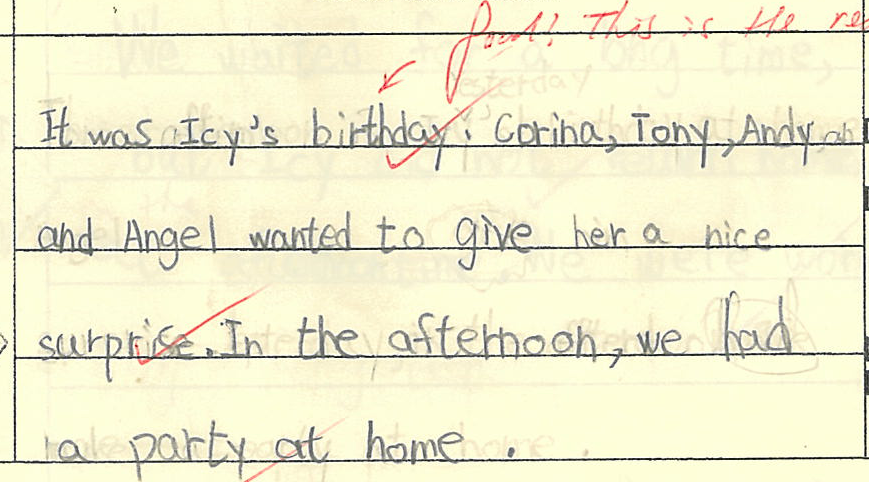 Good! This is the rea
It was Icy's birthday. Corina, Tony, Andy, an
and Angel wanted to give her a nice
surprise. In the afternoon, we had
a party at home.